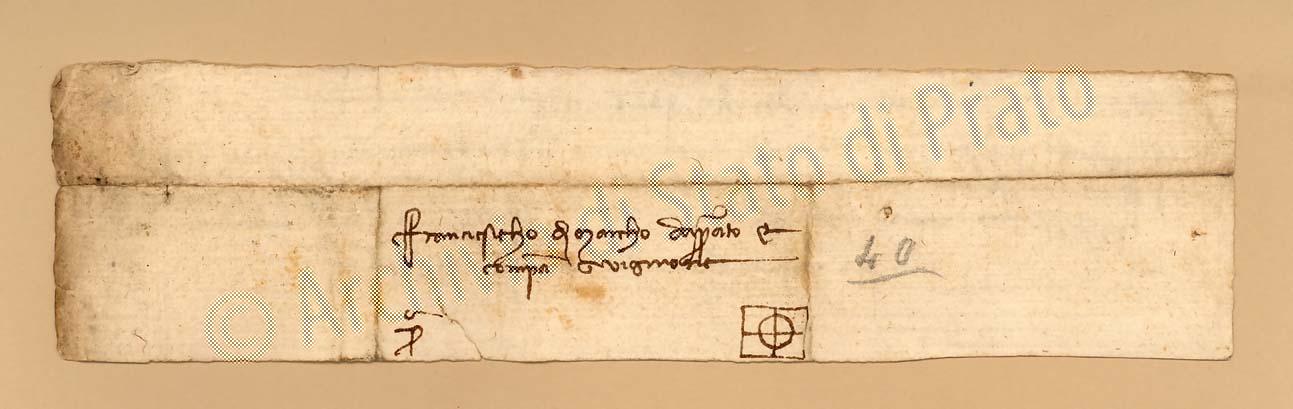 Franciescho di Marcho da Prato e
compa Vignone
40
© Archivio di Stato di Prato